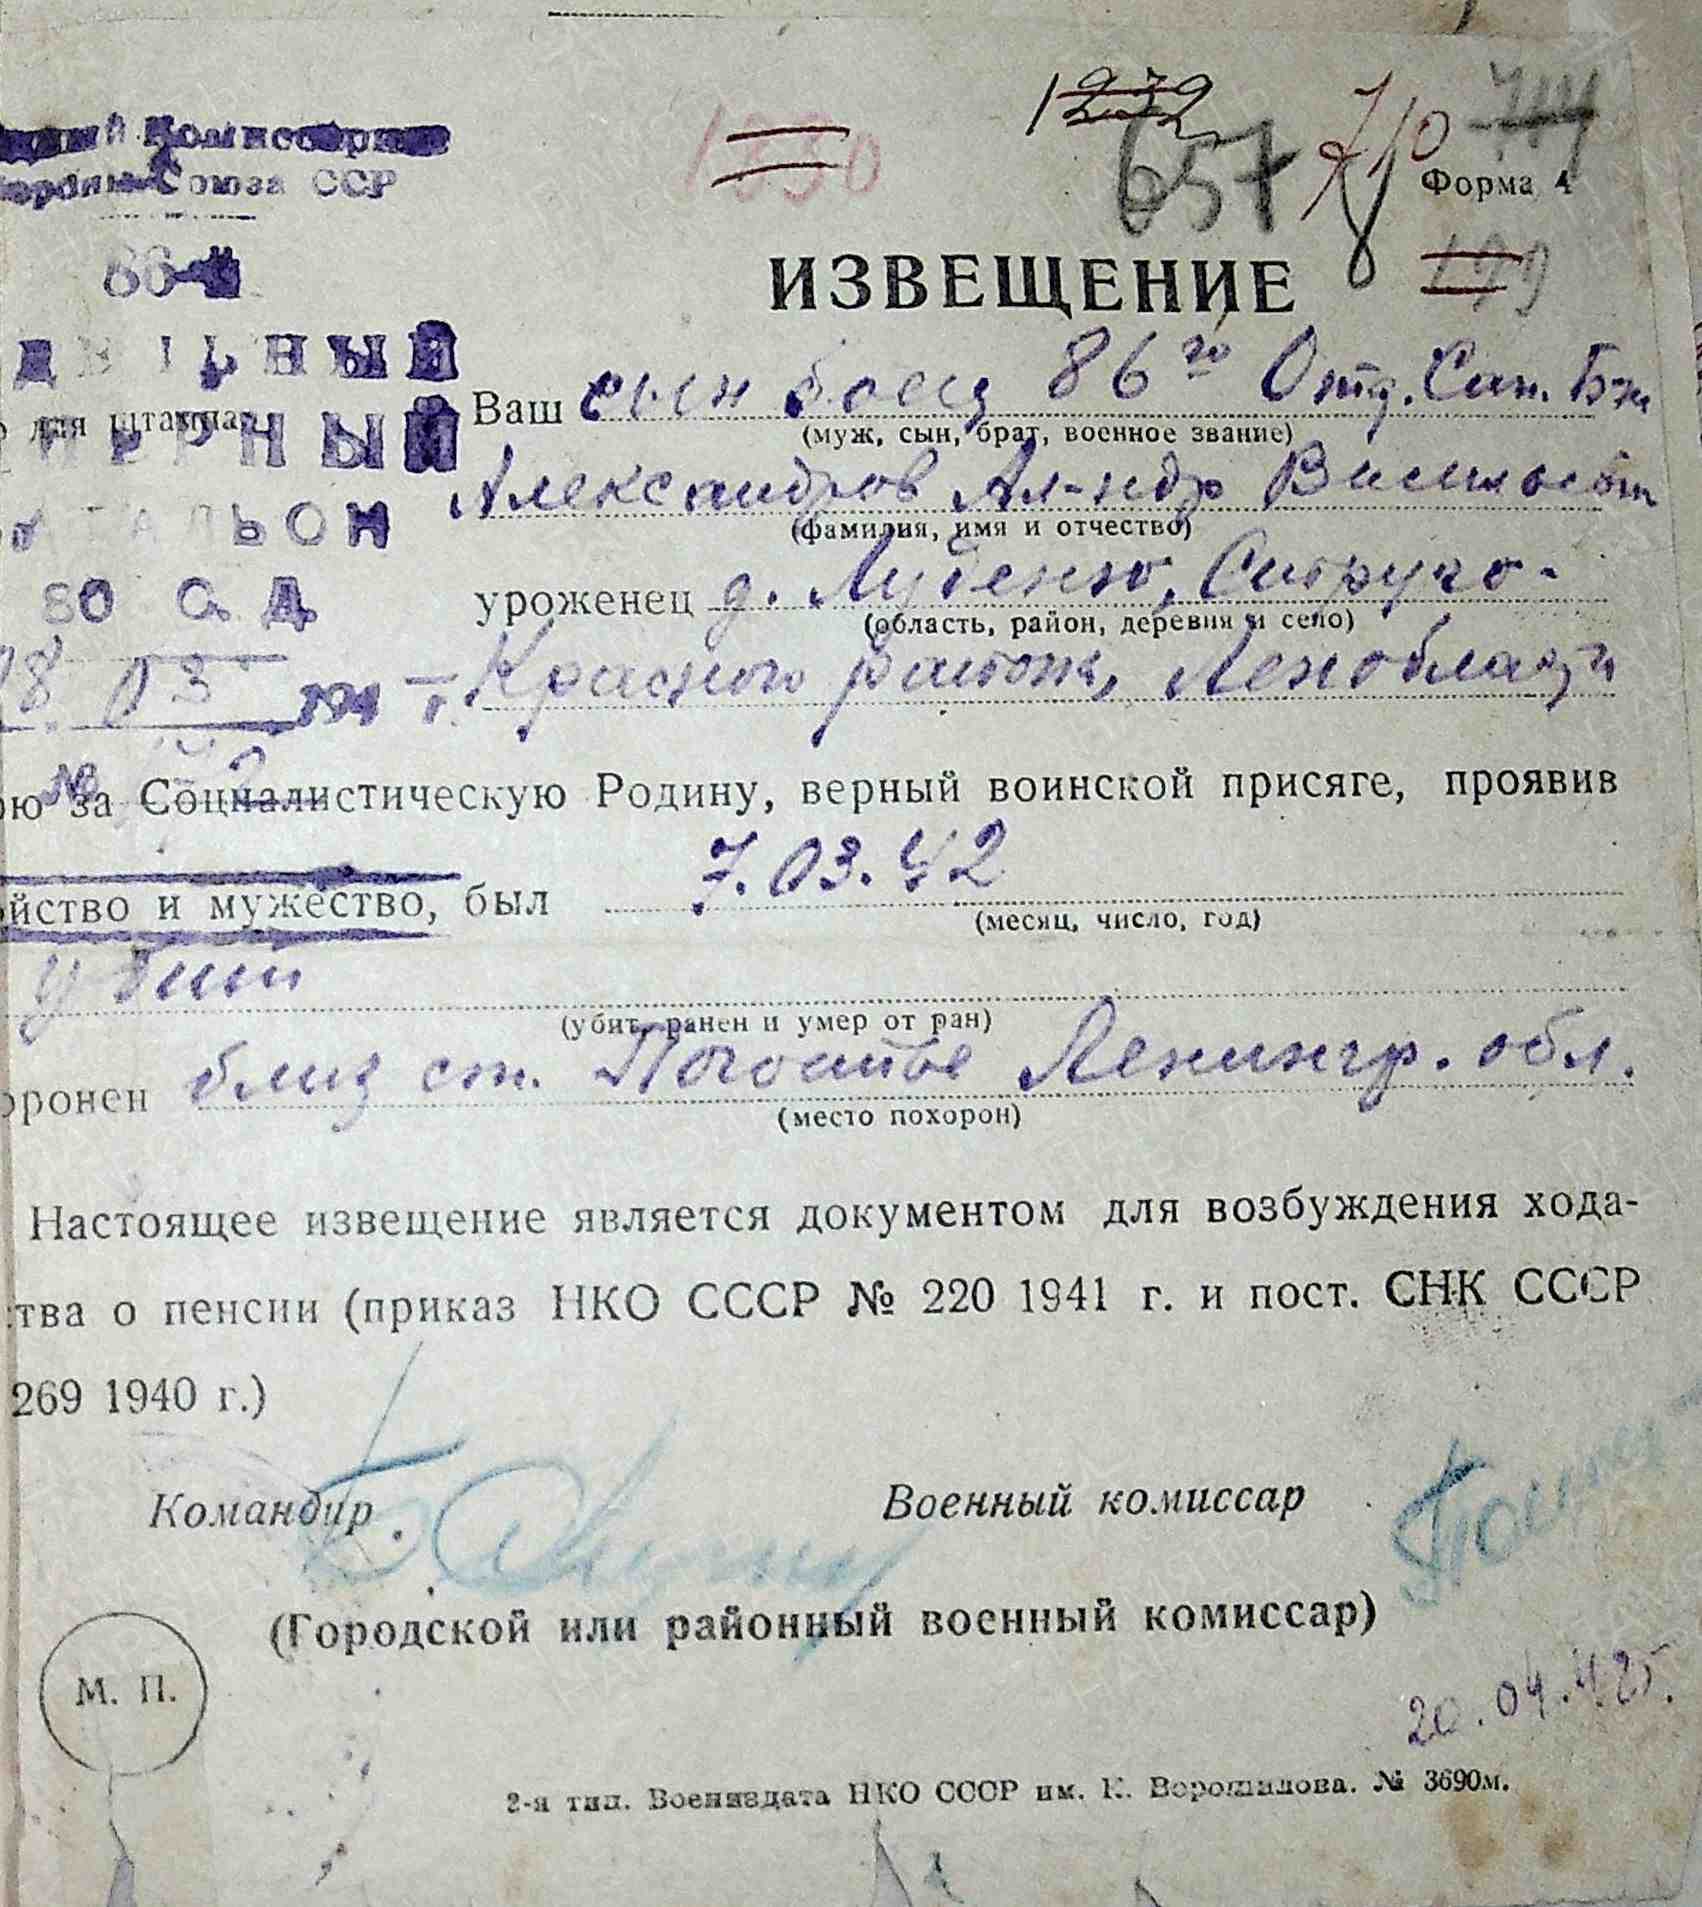 1330
1232
657
710
744
Форма 4
199
Комиссариат
Союза ССР
86
ИЗВЕЩЕНИЕ
Ваш сын боец 86го Отд. Сап. Б-на
(муж, сын, брат, военное звание)
для штампа
Александров Ал-ндр Васильевич
(фамилия, имя и отчество)
БАТАЛЬОН
80 С. Д.
уроженец д. Лубенко, Струго-
(область, район, деревня и село)
Красного района, Ленобласти
03 194 г.
№
ою за Социалистическую Родину, верный воинской присяге, проявив
ойство и мужество, был 7.03.42
(месяц, число, год)
убит
(убит, ранен и умер от ран)
оронен близ ст. Погостье Ленингр. обл.
(место похорон)
Настоящее извещение является документом для возбуждения хода-
ства о пенсии (приказ НКО СССР № 220 1941 г. и пост. СНК СССР
269 1940 г.)
Командир
Военный комиссар
(Городской или районный военный комиссар)
М. П.
20.04.42г.
2-я тип. Воениздата НКО СССР им. К. Ворошилова. № 3690м.